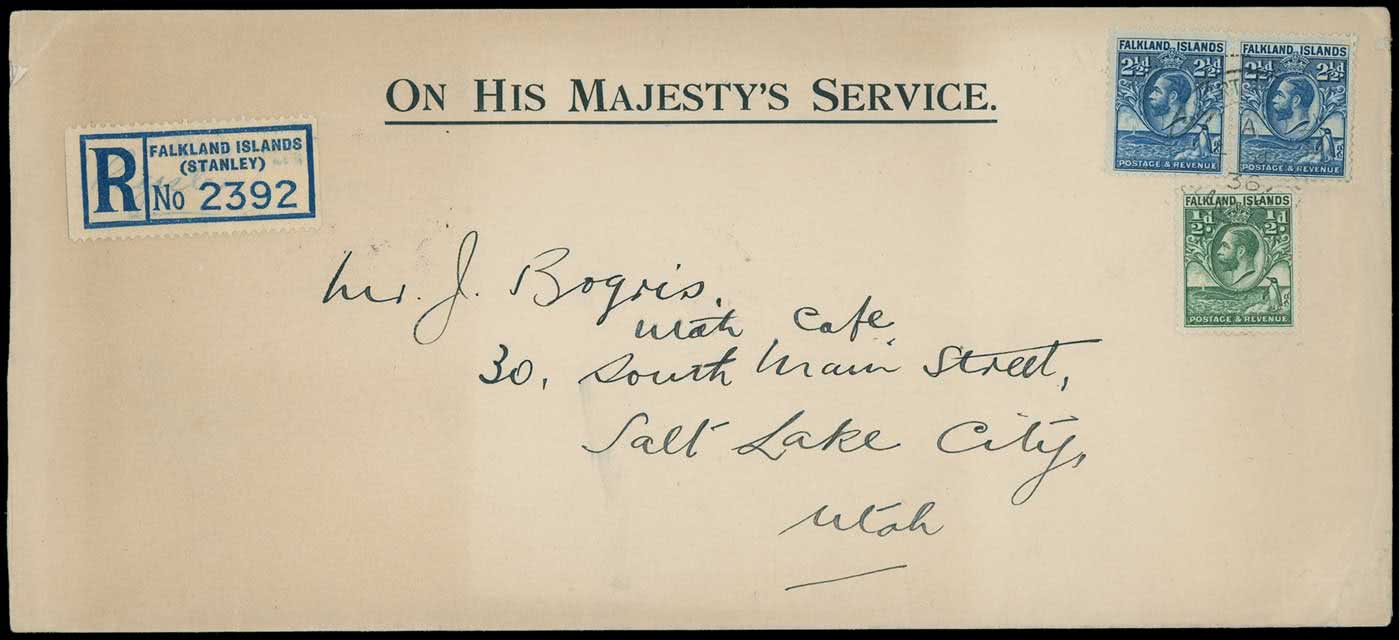 ON HIS MAJESTY'S SERVICE.
R
FALKLAND ISLANDS
(STANLEY)
No 2392
FALKLAND ISLANDS
2½d 2½d
POSTAGE & REVENUE
FALKLAND ISLANDS
2½d 2½d
POSTAGE & REVENUE
36
FALKLAND ISLANDS
½d. ½d.
POSTAGE & REVENUE
Mr. J. Bogris,
Utah Cafe
30, South Main Street,
Salt Lake City,
Utah